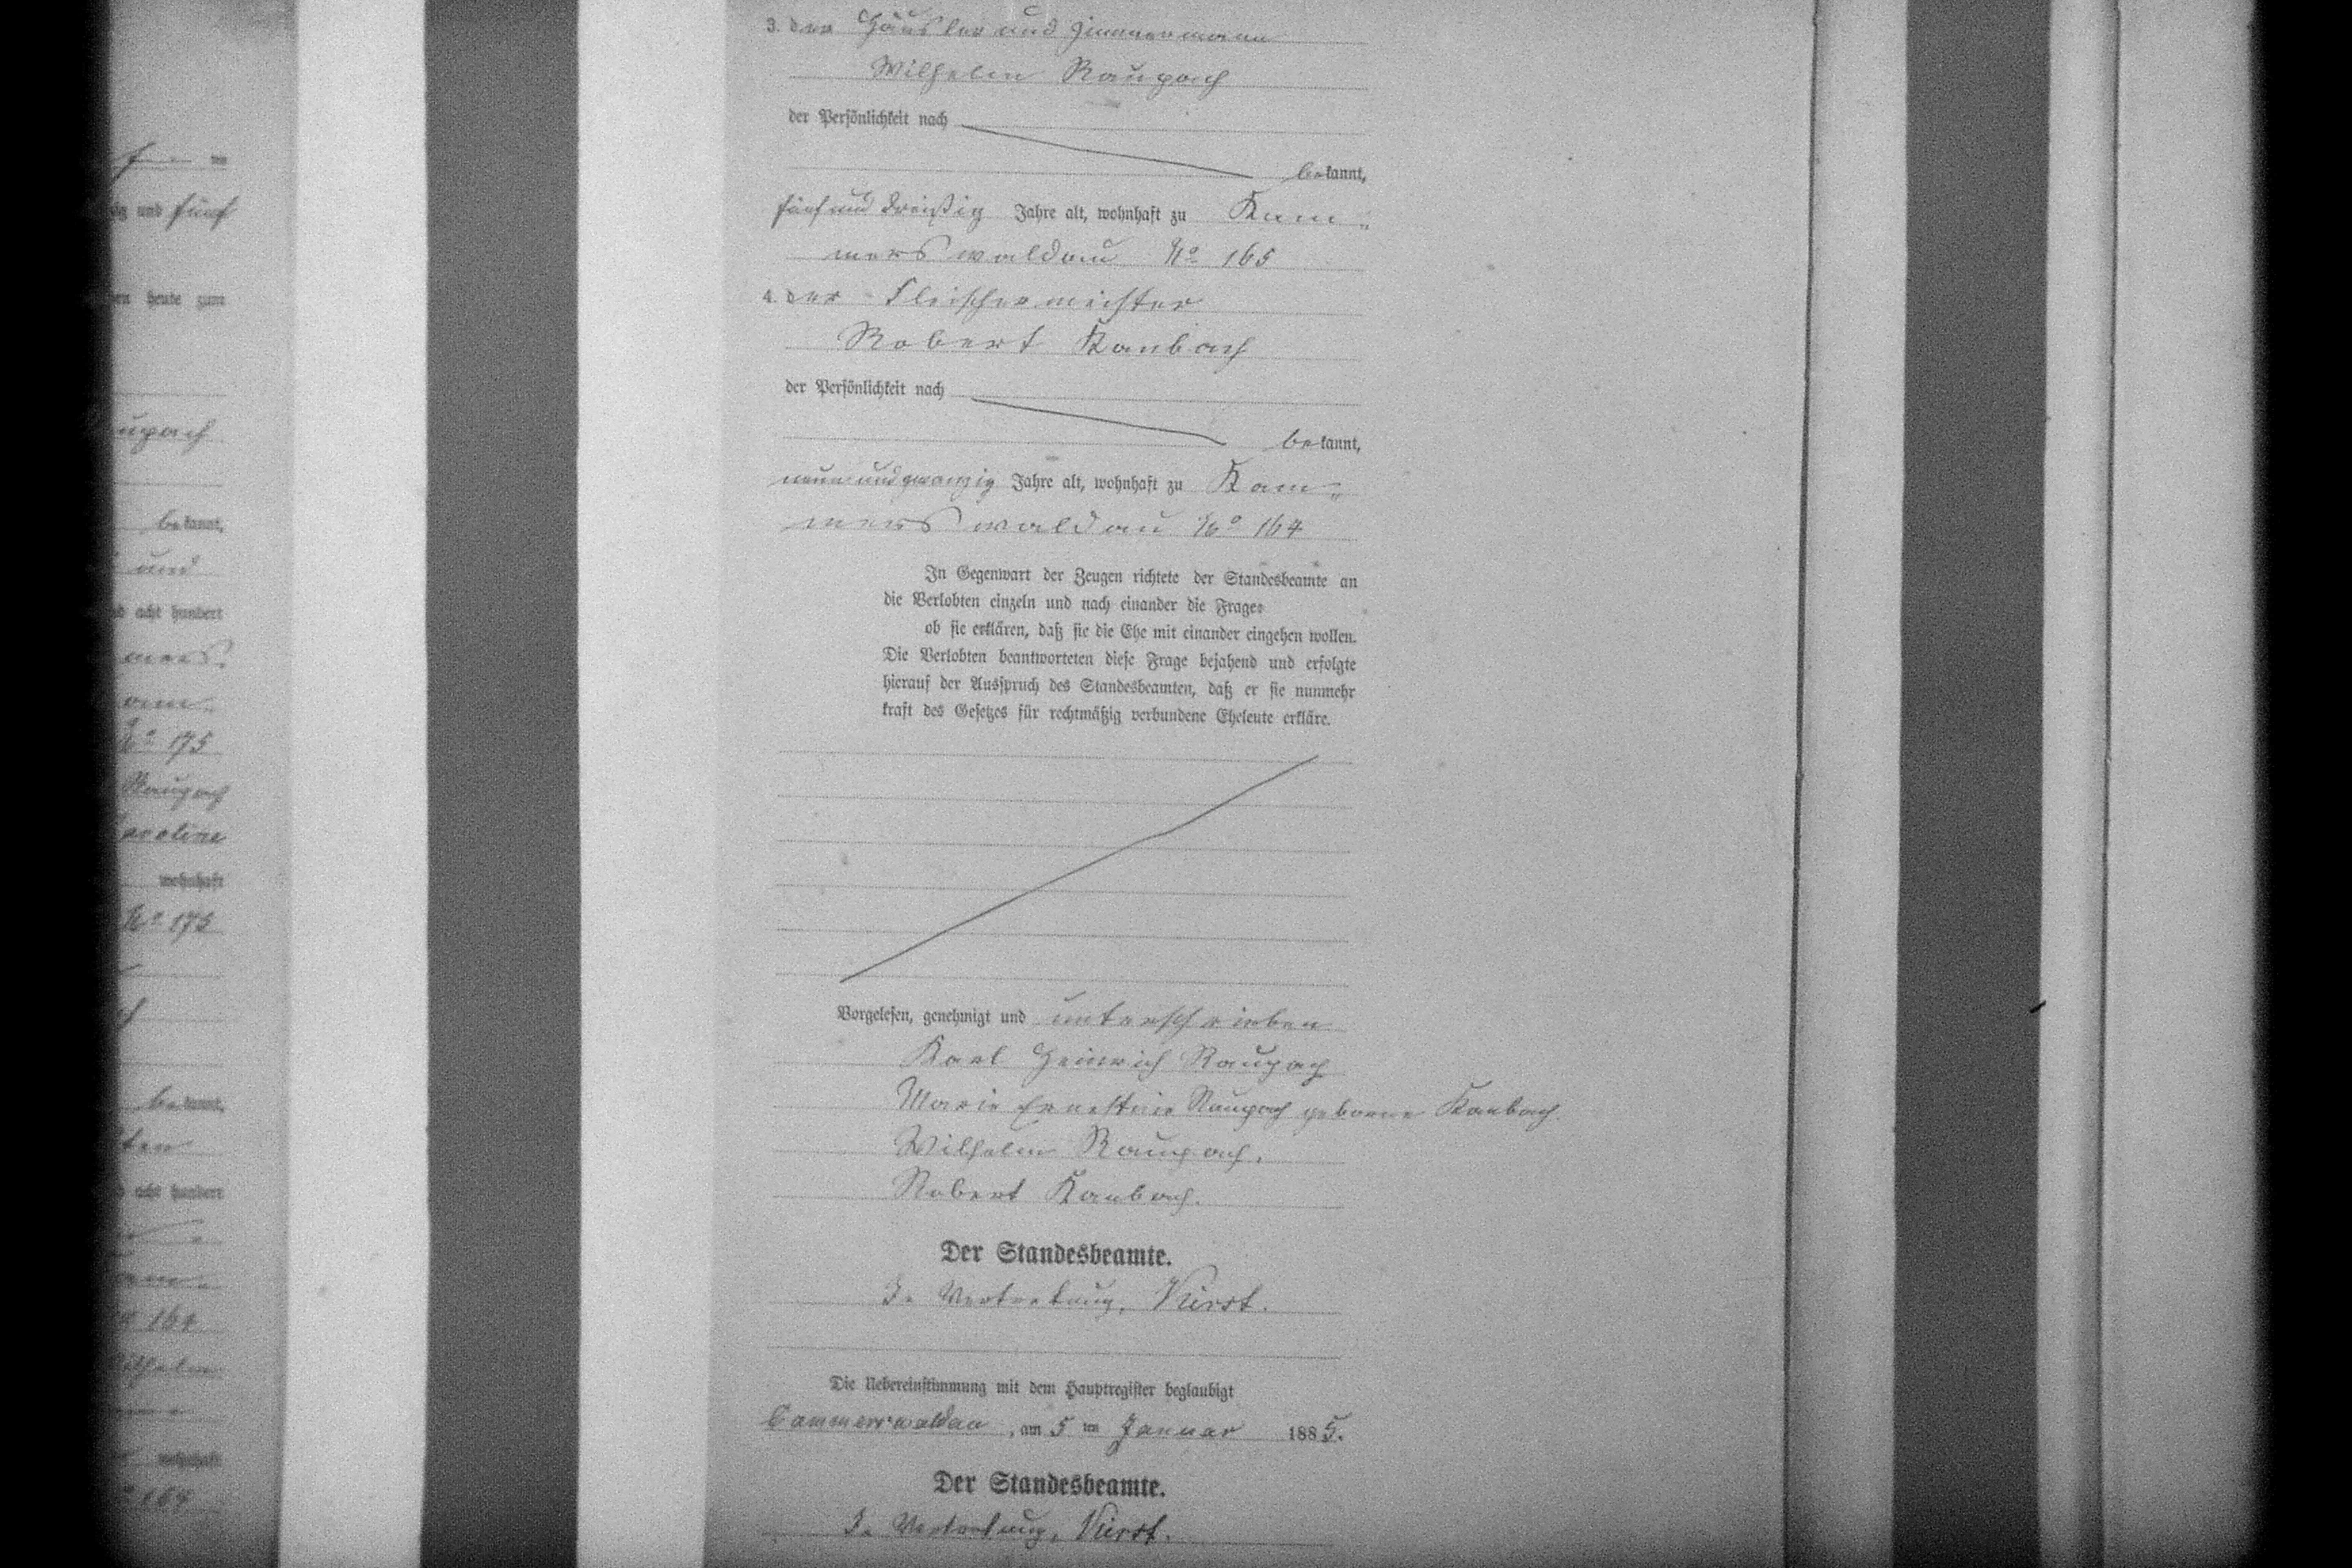 und fünf
heute zum
upach
bekannt,
und
acht hundert
mers
am
No 175
Raupach
Karoline
wohnhaft
No 175
bekannt,
ten
acht hundert
164
Wilhelm
wohnhaft
164
3. der Häusler und Zimmermann
Wilhelm Raupach
der Persönlichkeit nach
bekannt,
fünf und dreißig Jahre alt, wohnhaft zu Kam-
merswaldau No 165
4. der Fleischermeister
Robert Kanbach
der Persönlichkeit nach
bekannt,
neun und zwanzig Jahre alt, wohnhaft zu Kam-
merswaldau No 164
In Gegenwart der Zeugen richtete der Standesbeamte an
die Verlobten einzeln und nach einander die Frage:
ob sie erklären, daß sie die Ehe mit einander eingehen wollen.
Die Verlobten beantworteten diese Frage bejahend und erfolgte
hierauf der Ausspruch des Standesbeamten, daß er sie nunmehr
kraft des Gesetzes für rechtmäßig verbundene Eheleute erkläre.
Vorgelesen, genehmigt und unterschrieben
Karl Heinrich Raupach
Marie Ernestine Raupach geborne Kanbach.
Wilhelm Raupach.
Robert Kanbach.
Der Standesbeamte.
In Vertretung, Kürst.
Die Uebereinstimmung mit dem Hauptregister beglaubigt
Cammerswaldau, am 5 ten Januar 1885.
Der Standesbeamte.
In Vertretung, Kürst.